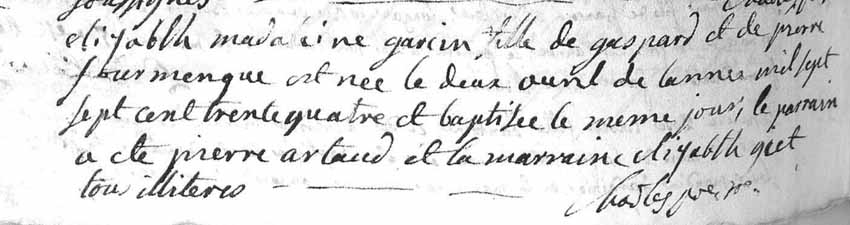 soussignés
elizabth madaleine garcin fille de gaspard et de pierre
fourmenque est née le deux avril de lannee mil sept
sept cent trente quatre et baptisee le meme jour, le parrain
a ete pierre artaud et la marraine elizabth giet
tous illiteres